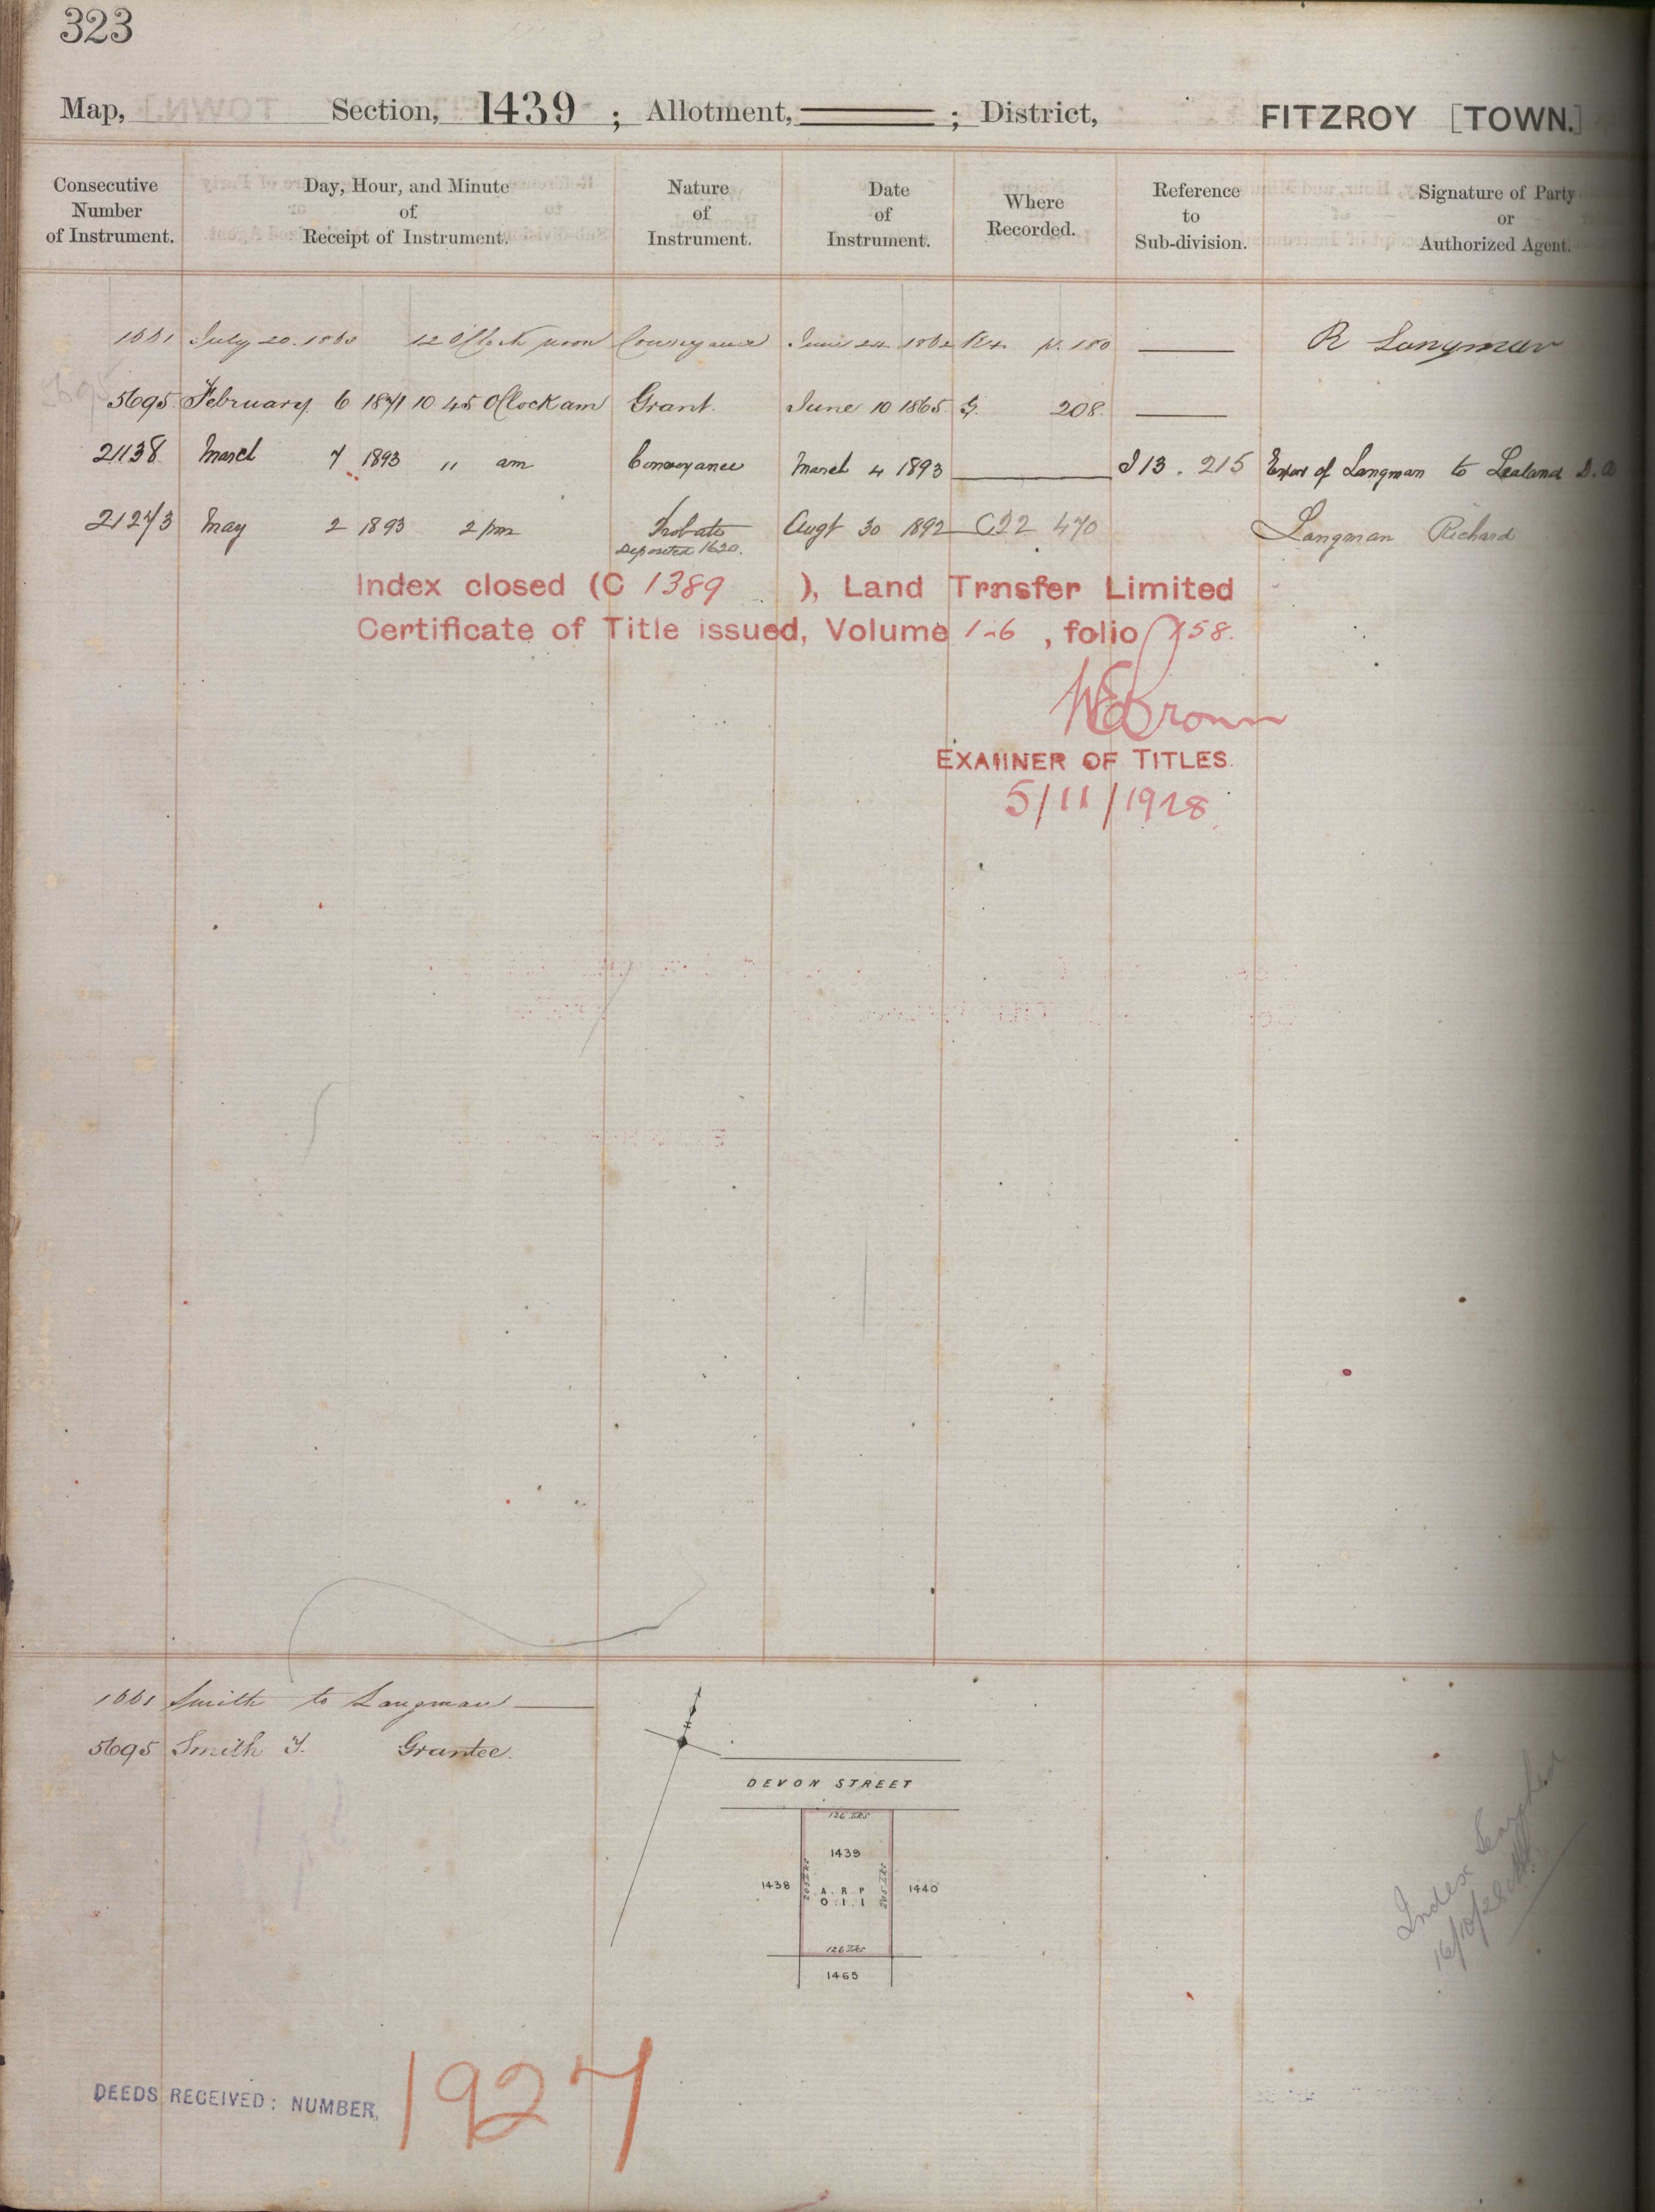 323
Map, Section, 1439 ; Allotment, ; District, FITZROY [TOWN.]
Consecutive Number of Instrument. Day, Hour, and Minute of Receipt of Instrument. Nature of Instrument. Date of Instrument. Where Recorded. Reference to Sub-division. Signature of Party or Authorized Agent.
1661 July 20. 1863 12 O'Clock noon Conveyance June 24 1862 R4 p. 180 R Langman
5695 February 6 1871 10 45 O'Clock am Grant. June 10 1865 G. 208.
21138 March 7 1893 11 am Conveyance March 4 1893 I 13. 215 Exor of Langman to Lealand D.
21273 May 2 1893 2 pm Probate Augt 30 1892 C22 470 Langman Richard
Deposited 1620.
Index closed (C 1389 ), Land Trnsfer Limited
Certificate of Title issued, Volume 126, folio 158.
WEBrown
EXAMINER OF TITLES.
5/11/1928
1661 Smith to Langman
5695 Smith T. Grantee.
DEVON STREET
126 lks
1439
1438 205 lks A. R. P 205 lks 1440
0. 1. 1
126 lks
1465
Index Searched
16/10/28
DEEDS RECEIVED: NUMBER, 1927